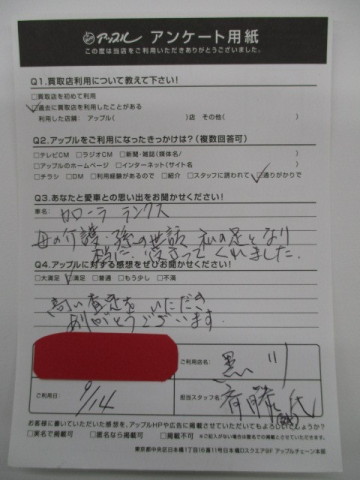 アップル アンケート用紙
この度は当店をご利用いただきありがとうございました。
Q1.買取店利用について教えて下さい!
□買取店を初めて利用
□過去に買取店を利用したことがある
利用した店舗: アップル( )店 その他( )
Q2.アップルをご利用になったきっかけは?(複数回答可)
□テレビCM □ラジオCM □新聞・雑誌(媒体名/ )
□アップルのホームページ □インターネット(サイト名 )
□チラシ □DM □利用経験があるので □紹介 □スタッフに誘われて □通りがかりで
Q3.あなたと愛車との思い出をお聞かせください!
車名:
カローラ ランクス
母の介護・孫の世話 私の足となり
本当に役立ってくれました。
Q4.アップルに対する感想をぜひお聞かせください!
□大満足 □満足 □普通 □もう少し □不満
高い査定をいただき
ありがとうございます。
ご利用店名:
黒川
ご利用日:
9/14
担当スタッフ名:
斉藤 氏
お客様に書いていただいた感想を、アップルHPや広告に掲載させていただいてもよろしいでしょうか?
□実名で掲載可 □匿名なら掲載可 □掲載不可 ※ご記入がない場合は匿名での掲載とさせていただきます。
東京都中央区日本橋1丁目16番11号日本橋DスクエアBF アップルチェーン本部